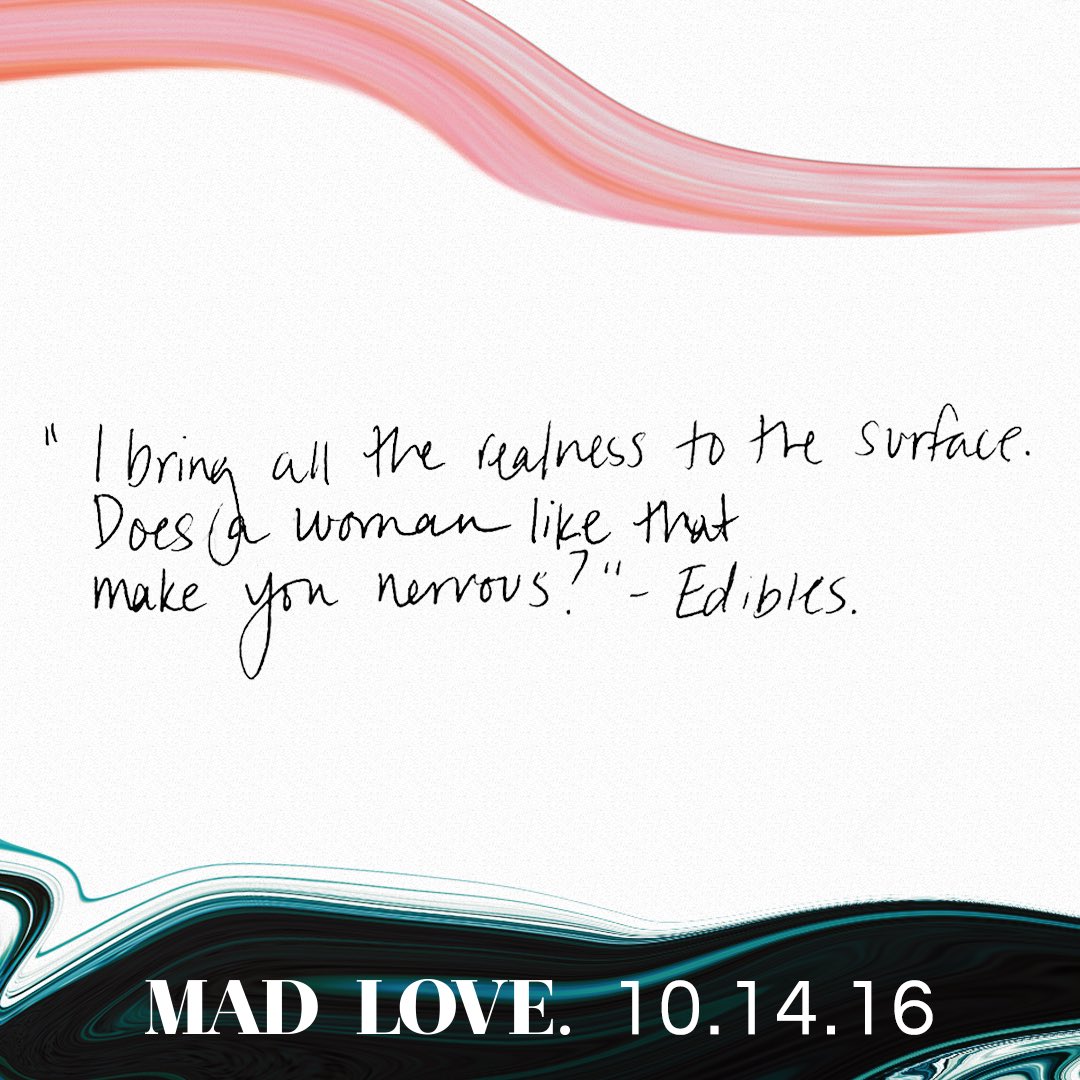 "I bring all the realness to the surface.
Does a woman like that
make you nervous?" - Edibles.
MAD LOVE. 10.14.16